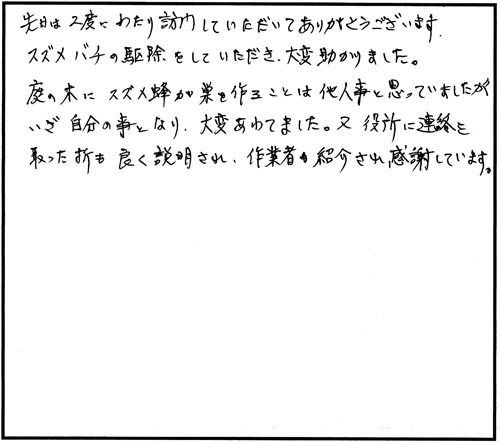 先日は2度にわたり訪問していただいてありがとうございます.
スズメバチの駆除をしていただき、大変助かりました。
庭の木にスズメ蜂が巣を作ることは他人事と思っていましたが
いざ自分の事となり、大変あわてました。又役所に連絡を
取った折も良く説明され、作業者も紹介され感謝しています。